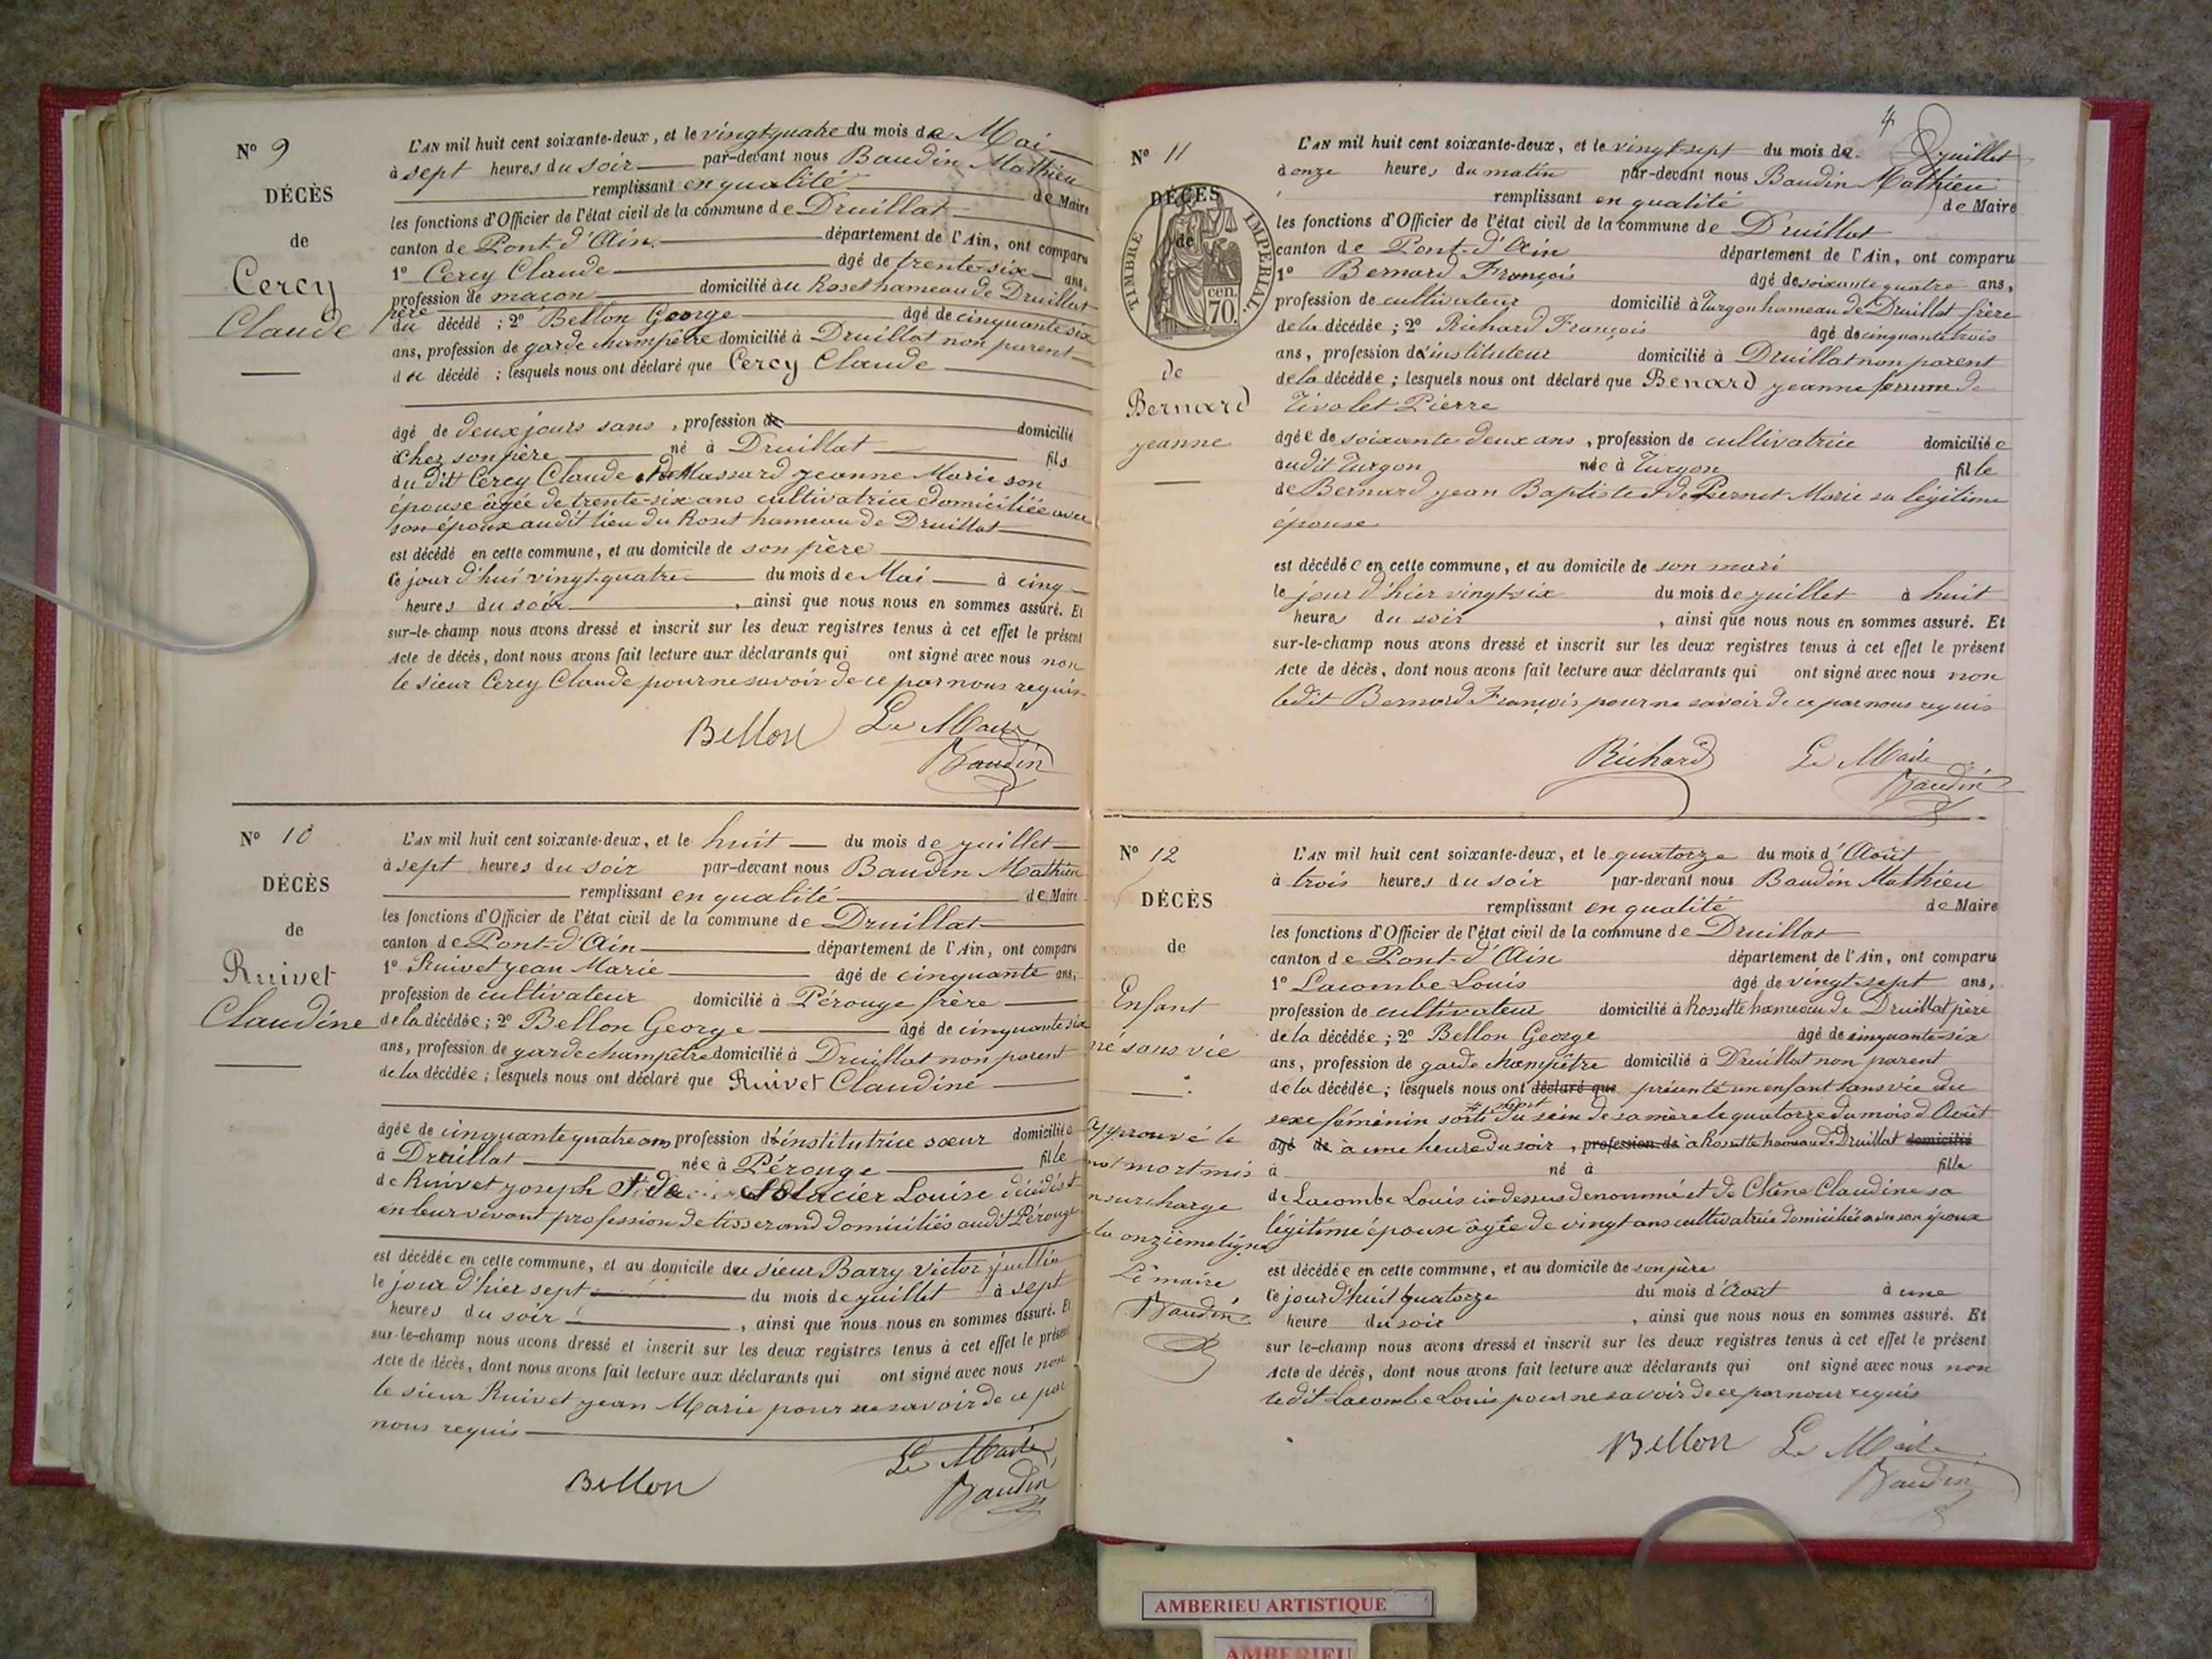 N° 9
DÉCÈS
de
Cercy
Claude
L'AN mil huit cent soixante-deux, et le vingt-quatre du mois de Mai
à sept heures du soir par-devant nous Baudin Mathieu
remplissant en qualité de Maire
les fonctions d'Officier de l'état civil de la commune de Druillat
canton de Pont-d'Ain département de l'Ain, ont comparu
1° Cercy Claude âgé de trente-six ans,
profession de maçon domicilié au Roset hameau de Druillat
père
du décédé ; 2° Bellon George âgé de cinquante six
ans, profession de garde champêtre domicilié à Druillat non parent
du décédé ; lesquels nous ont déclaré que Cercy Claude
âgé de deux jours sans , profession de domicilié
chez son père né à Druillat fils
du dit Cercy Claude et de Massard jeanne Marie son
épouse âgée de trente-six ans cultivatrice domiciliée avec
son époux audit lieu du Roset hameau de Druillat
est décédé en cette commune, et au domicile de son père
ce jour d'hui vingt-quatre du mois de Mai à cinq
heures du soir , ainsi que nous nous en sommes assuré. Et
sur-le-champ nous avons dressé et inscrit sur les deux registres tenus à cet effet le présent
Acte de décès, dont nous avons fait lecture aux déclarants qui ont signé avec nous non
le sieur Cercy Claude pour ne savoir de ce par nous requis
Bellon Le Maire
Baudin
N° 10
DÉCÈS
de
Ruivet
Claudine
L'AN mil huit cent soixante-deux, et le huit du mois de juillet
à sept heures du soir par-devant nous Baudin Mathieu
remplissant en qualité de Maire
les fonctions d'Officier de l'état civil de la commune de Druillat
canton de Pont-d'Ain département de l'Ain, ont comparu
1° Ruivet jean Marie âgé de cinquante ans,
profession de cultivateur domicilié à Pérouge frère
de la décédée ; 2° Bellon George âgé de cinquante six
ans, profession de garde champêtre domicilié à Druillat non parent
de la décédée ; lesquels nous ont déclaré que Ruivet Claudine
âgée de cinquante quatre ans profession d'institutrice sœur domiciliée
à Druillat née à Pérouge fille
de Ruivet joseph et de Louise décédés et
en leur vivant profession de tisserand domiciliés audit Pérouge
est décédée en cette commune, et au domicile du sieur Barry Victor
le jour d'hier sept du mois de juillet à sept
heures du soir , ainsi que nous nous en sommes assuré. Et
sur-le-champ nous avons dressé et inscrit sur les deux registres tenus à cet effet le présent
Acte de décès, dont nous avons fait lecture aux déclarants qui ont signé avec nous non
le sieur Ruivet jean Marie pour ne savoir de ce par
nous requis
Bellon Le Maire
Baudin
4
N° 11
DÉCÈS
de
TIMBRE IMPÉRIAL
cen. 70.
de
Bernard
jeanne
L'AN mil huit cent soixante-deux, et le vingt-sept du mois de juillet
à onze heures du matin par-devant nous Baudin Mathieu
remplissant en qualité de Maire
les fonctions d'Officier de l'état civil de la commune de Druillat
canton de Pont-d'Ain département de l'Ain, ont comparu
1° Bernard François âgé de soixante quatre ans,
profession de cultivateur domicilié à Turgon hameau de Druillat frère
de la décédée ; 2° Richard François âgé de cinquante trois
ans, profession d'instituteur domicilié à Druillat non parent
de la décédée ; lesquels nous ont déclaré que Benard jeanne femme de
Tivolet Pierre
âgée de soixante deux ans , profession de cultivatrice domiciliée
audit Turgon née à Turgon fille
de Bernard jean Baptiste et de Pernet Marie sa légitime
épouse
est décédée en cette commune, et au domicile de son mari
le jour d'hier vingt-six du mois de juillet à huit
heures du soir , ainsi que nous nous en sommes assuré. Et
sur-le-champ nous avons dressé et inscrit sur les deux registres tenus à cet effet le présent
Acte de décès, dont nous avons fait lecture aux déclarants qui ont signé avec nous non
ledit Bernard François pour ne savoir de ce par nous requis
Richard Le Maire
Baudin
N° 12
DÉCÈS
de
Enfant
né sans vie
approuvé le
mot mort mis
en surcharge
à la onzième ligne
Le maire
Baudin
L'AN mil huit cent soixante-deux, et le quatorze du mois d'Août
à trois heures du soir par-devant nous Baudin Mathieu
remplissant en qualité de Maire
les fonctions d'Officier de l'état civil de la commune de Druillat
canton de Pont-d'Ain département de l'Ain, ont comparu
1° Lacombe Louis âgé de vingt-sept ans,
profession de cultivateur domicilié à Rossette hameau de Druillat père
de la décédée ; 2° Bellon George âgé de cinquante-six
ans, profession de garde champêtre domicilié à Druillat non parent
de la décédée ; lesquels nous ont déclaré que présenté un enfant sans vie du
sexe féminin sorti mort du sein de sa mère le quatorze du mois d'Août
âgé de à une heure du soir , profession de à Rossette hameau de Druillat domicilié
à né à fille
de Lacombe Louis ci-dessus dénommé et de Chêne Claudine sa
légitime épouse âgée de vingt ans cultivatrice domiciliée avec son époux
est décédée en cette commune, et au domicile de son père
ce jour d'huit quatorze du mois d'Août à une
heure du soir , ainsi que nous nous en sommes assuré. Et
sur le-champ nous avons dressé et inscrit sur les deux registres tenus à cet effet le présent
Acte de décès, dont nous avons fait lecture aux déclarants qui ont signé avec nous non
ledit Lacombe Louis pour ne savoir de ce par nous requis
Bellon Le Maire
Baudin
AMBERIEU ARTISTIQUE
AMBERIEU